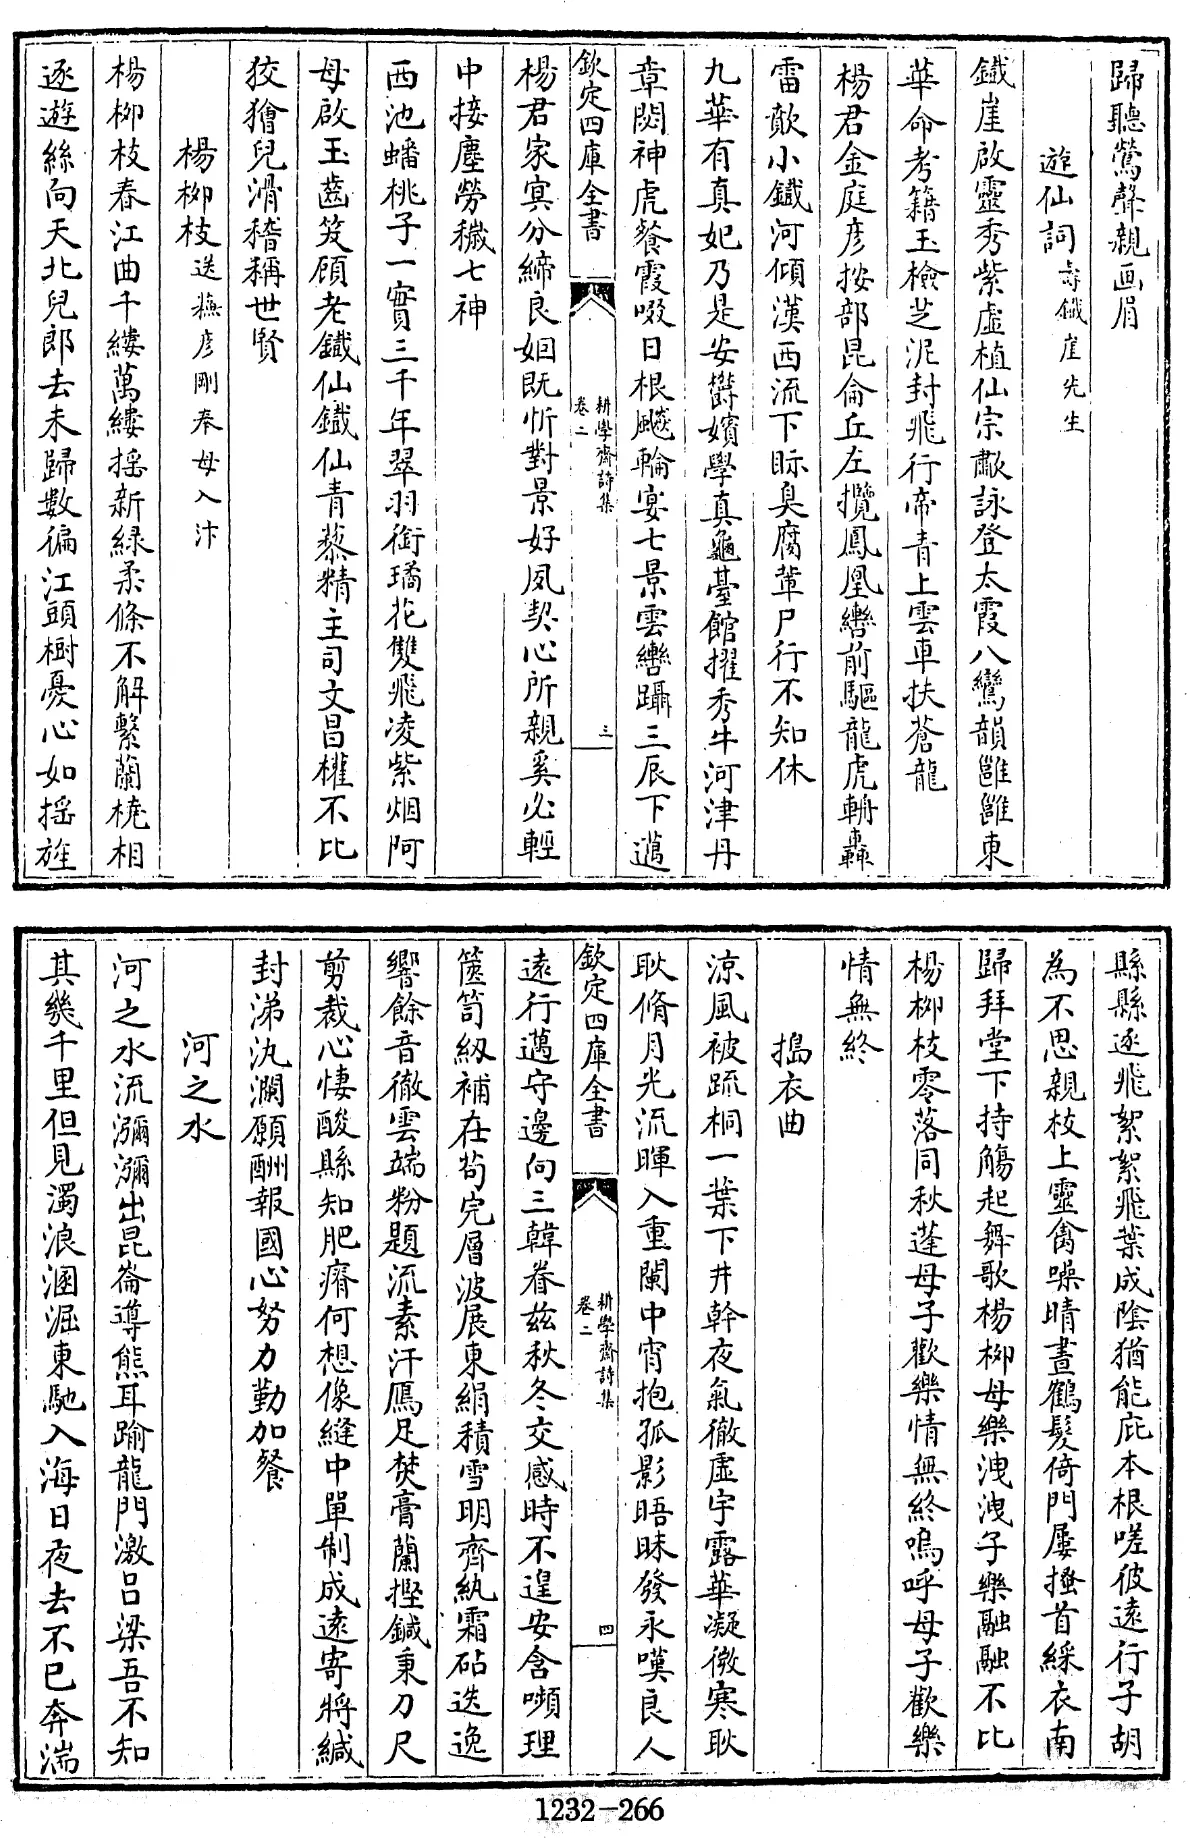 歸聽鶯聲親画眉
遊仙詞壽鐵崖先生
鐵崖啟靈秀紫虛植仙宗歗詠登太霞八鸞韻雝雝東
華命考籍玉檢芝泥封飛行帝青上雲車扶蒼龍
楊君金庭彦按部昆侖丘左攬鳳凰轡前驅龍虎輈轟
雷歕小鐵河傾漢西流下眎臭腐軰尸行不知休
九華有真妃乃是安欝嬪學真龜臺館擢秀牛河津丹
章閟神虎餐霞啜日根飇輪宴七景雲轡躡三辰下邁
欽定四庫全書
耕學齋詩集
卷二
三
楊君家㝠分締良姻既忻對景好夙契心所親奚必輕
中接塵勞穢七神
西池蟠桃子一實三千年翠羽銜璚花雙飛凌紫烟阿
母啟玉齒笑顧老鐵仙鐵仙青藜精主司文昌權不比
狡獪兒滑稽稱世賢
楊栁枝送䕃彦剛奉母入汴
楊栁枝春江曲千縷萬縷揺新緑柔條不解繫蘭橈相
逐遊絲向天北兒郎去未歸數徧江頭樹憂心如揺旌
縣縣逐飛絮絮飛葉成陰猶能庇本根嗟彼遠行子胡
為不思親枝上靈禽噪晴晝鶴髮倚門屢搔首綵衣南
歸拜堂下持觴起舞歌楊栁母樂洩洩子樂融融不比
楊栁枝零落同秋蓬母子歡樂情無終嗚呼母子歡樂
情無終
搗衣曲
涼風被疏桐一葉下井幹夜氣徹虛宇露華凝微寒耿
耿脩月光流暉入重闈中宵抱孤影晤昧發永嘆良人
欽定四庫全書
耕學齋詩集
卷二
四
遠行邁守邊向三韓眷兹秋冬交感時不遑安含嚬理
篋笥紉補在茍完層波展東絹積雪明齊紈霜砧迭逸
響餘音徹雲端粉題流素汗鴈足焚膏蘭摼鍼秉刀尺
剪裁心悽酸縣知肥瘠何想像縫中單制成遠寄將緘
封涕汍瀾願酬報國心努力勤加餐
河之水
河之水流瀰瀰出昆崙導熊耳踰龍門激吕梁吾不知
其幾千里但見濁浪溷淈東馳入海日夜去不已奔湍
1232-266